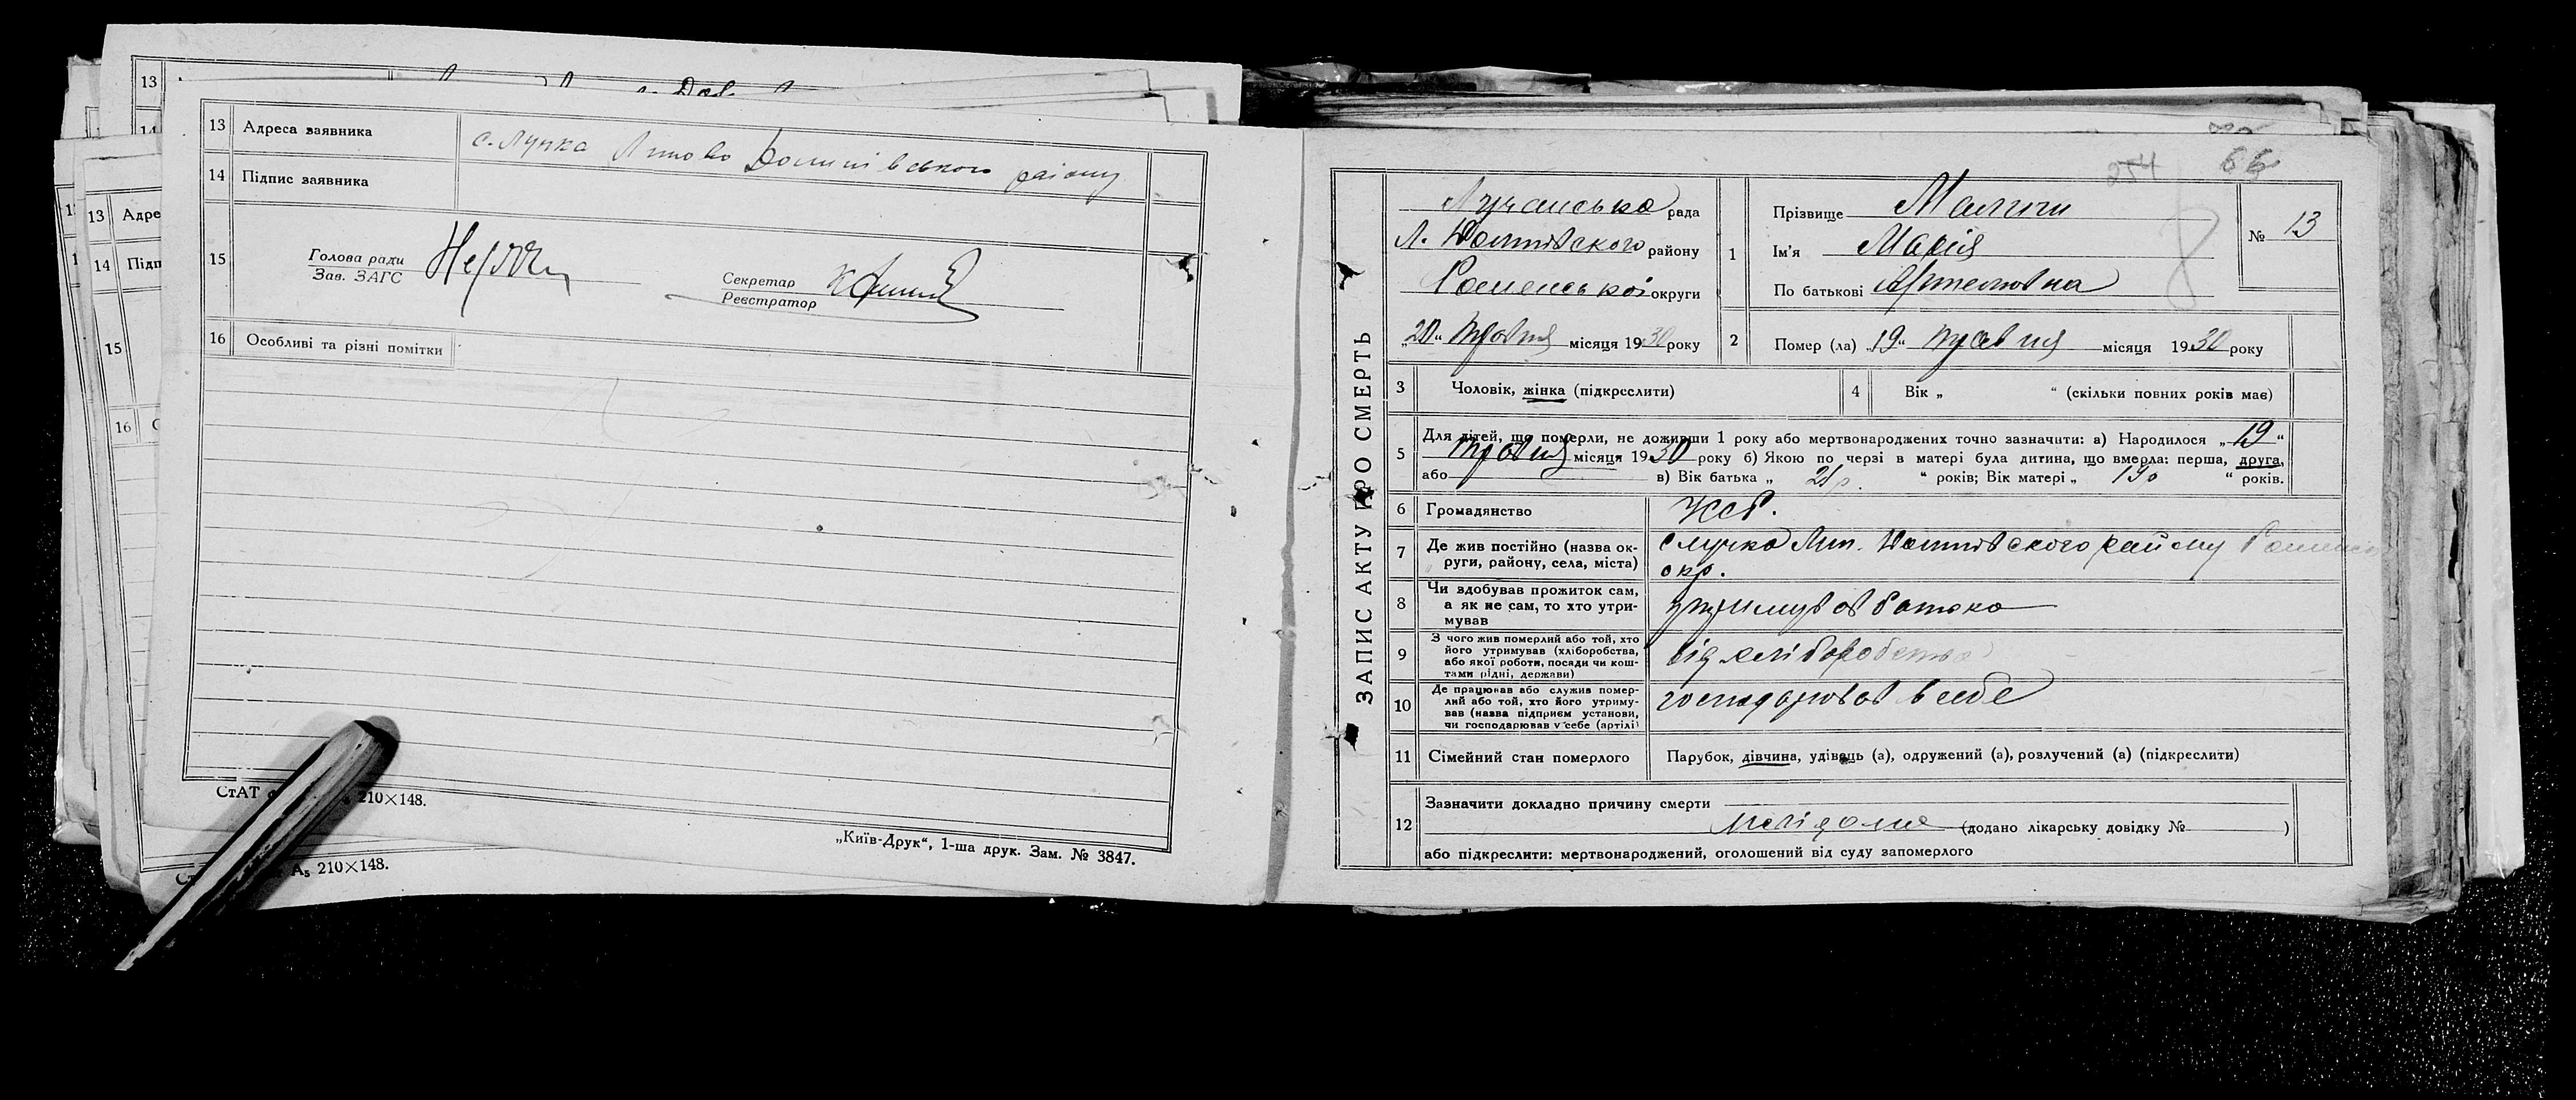 13 Адреса заявника с. Лучка Липово Долинівського району
14 Підпис заявника
15 Голова ради
Зав. ЗАГС
Секретар
Реєстратор
16 Особливі та різні помітки
СтАТ 210×148.
„Київ-Друк“, 1-ша друк. Зам. № 3847.
А5 210×148.
13 Адре
14 Підп
15
16
254 66
ЗАПИС АКТУ ПРО СМЕРТЬ
Лучанська рада
Л. Долинівского району
Роменської округи
„20“ травня місяця 1930 року
1 Прізвище
Ім'я Марія
По батькові Артемовна
№ 13
2 Помер (ла) „19“ травня місяця 1930 року
3 Чоловік, жінка (підкреслити)
4 Вік „ “ (скільки повних років має)
5 Для дітей, що померли, не доживши 1 року або мертвонароджених точно зазначити: а) Народилося „19“
травня місяця 1930 року б) Якою по черзі в матері була дитина, що вмерла: перша, друга,
або в) Вік батька „ “ років; Вік матері „ “ років.
6 Громадянство УСР.
7 Де жив постійно (назва ок-
руги, району, села, міста)
с Лучка Лип. Долинівского району Роменської
окр.
8 Чи здобував прожиток сам,
а як не сам, то хто утри-
мував
утримував батько
9 З чого жив померлий або той, хто
його утримував (хліборобства,
або якої роботи, посади чи кош-
тами рідні, держави)
від хліборобства
10 Де працював або служив помер-
лий або той, хто його утриму-
вав (назва підприєм установи,
чи господарював у себе (артілі)
господарював в себе
11 Сімейний стан померлого Парубок, дівчина, удівець (а), одружений (а), розлучений (а) (підкреслити)
12 Зазначити докладно причину смерти
невідома (додано лікарську довідку № )
або підкреслити: мертвонароджений, оголошений від суду запомерлого